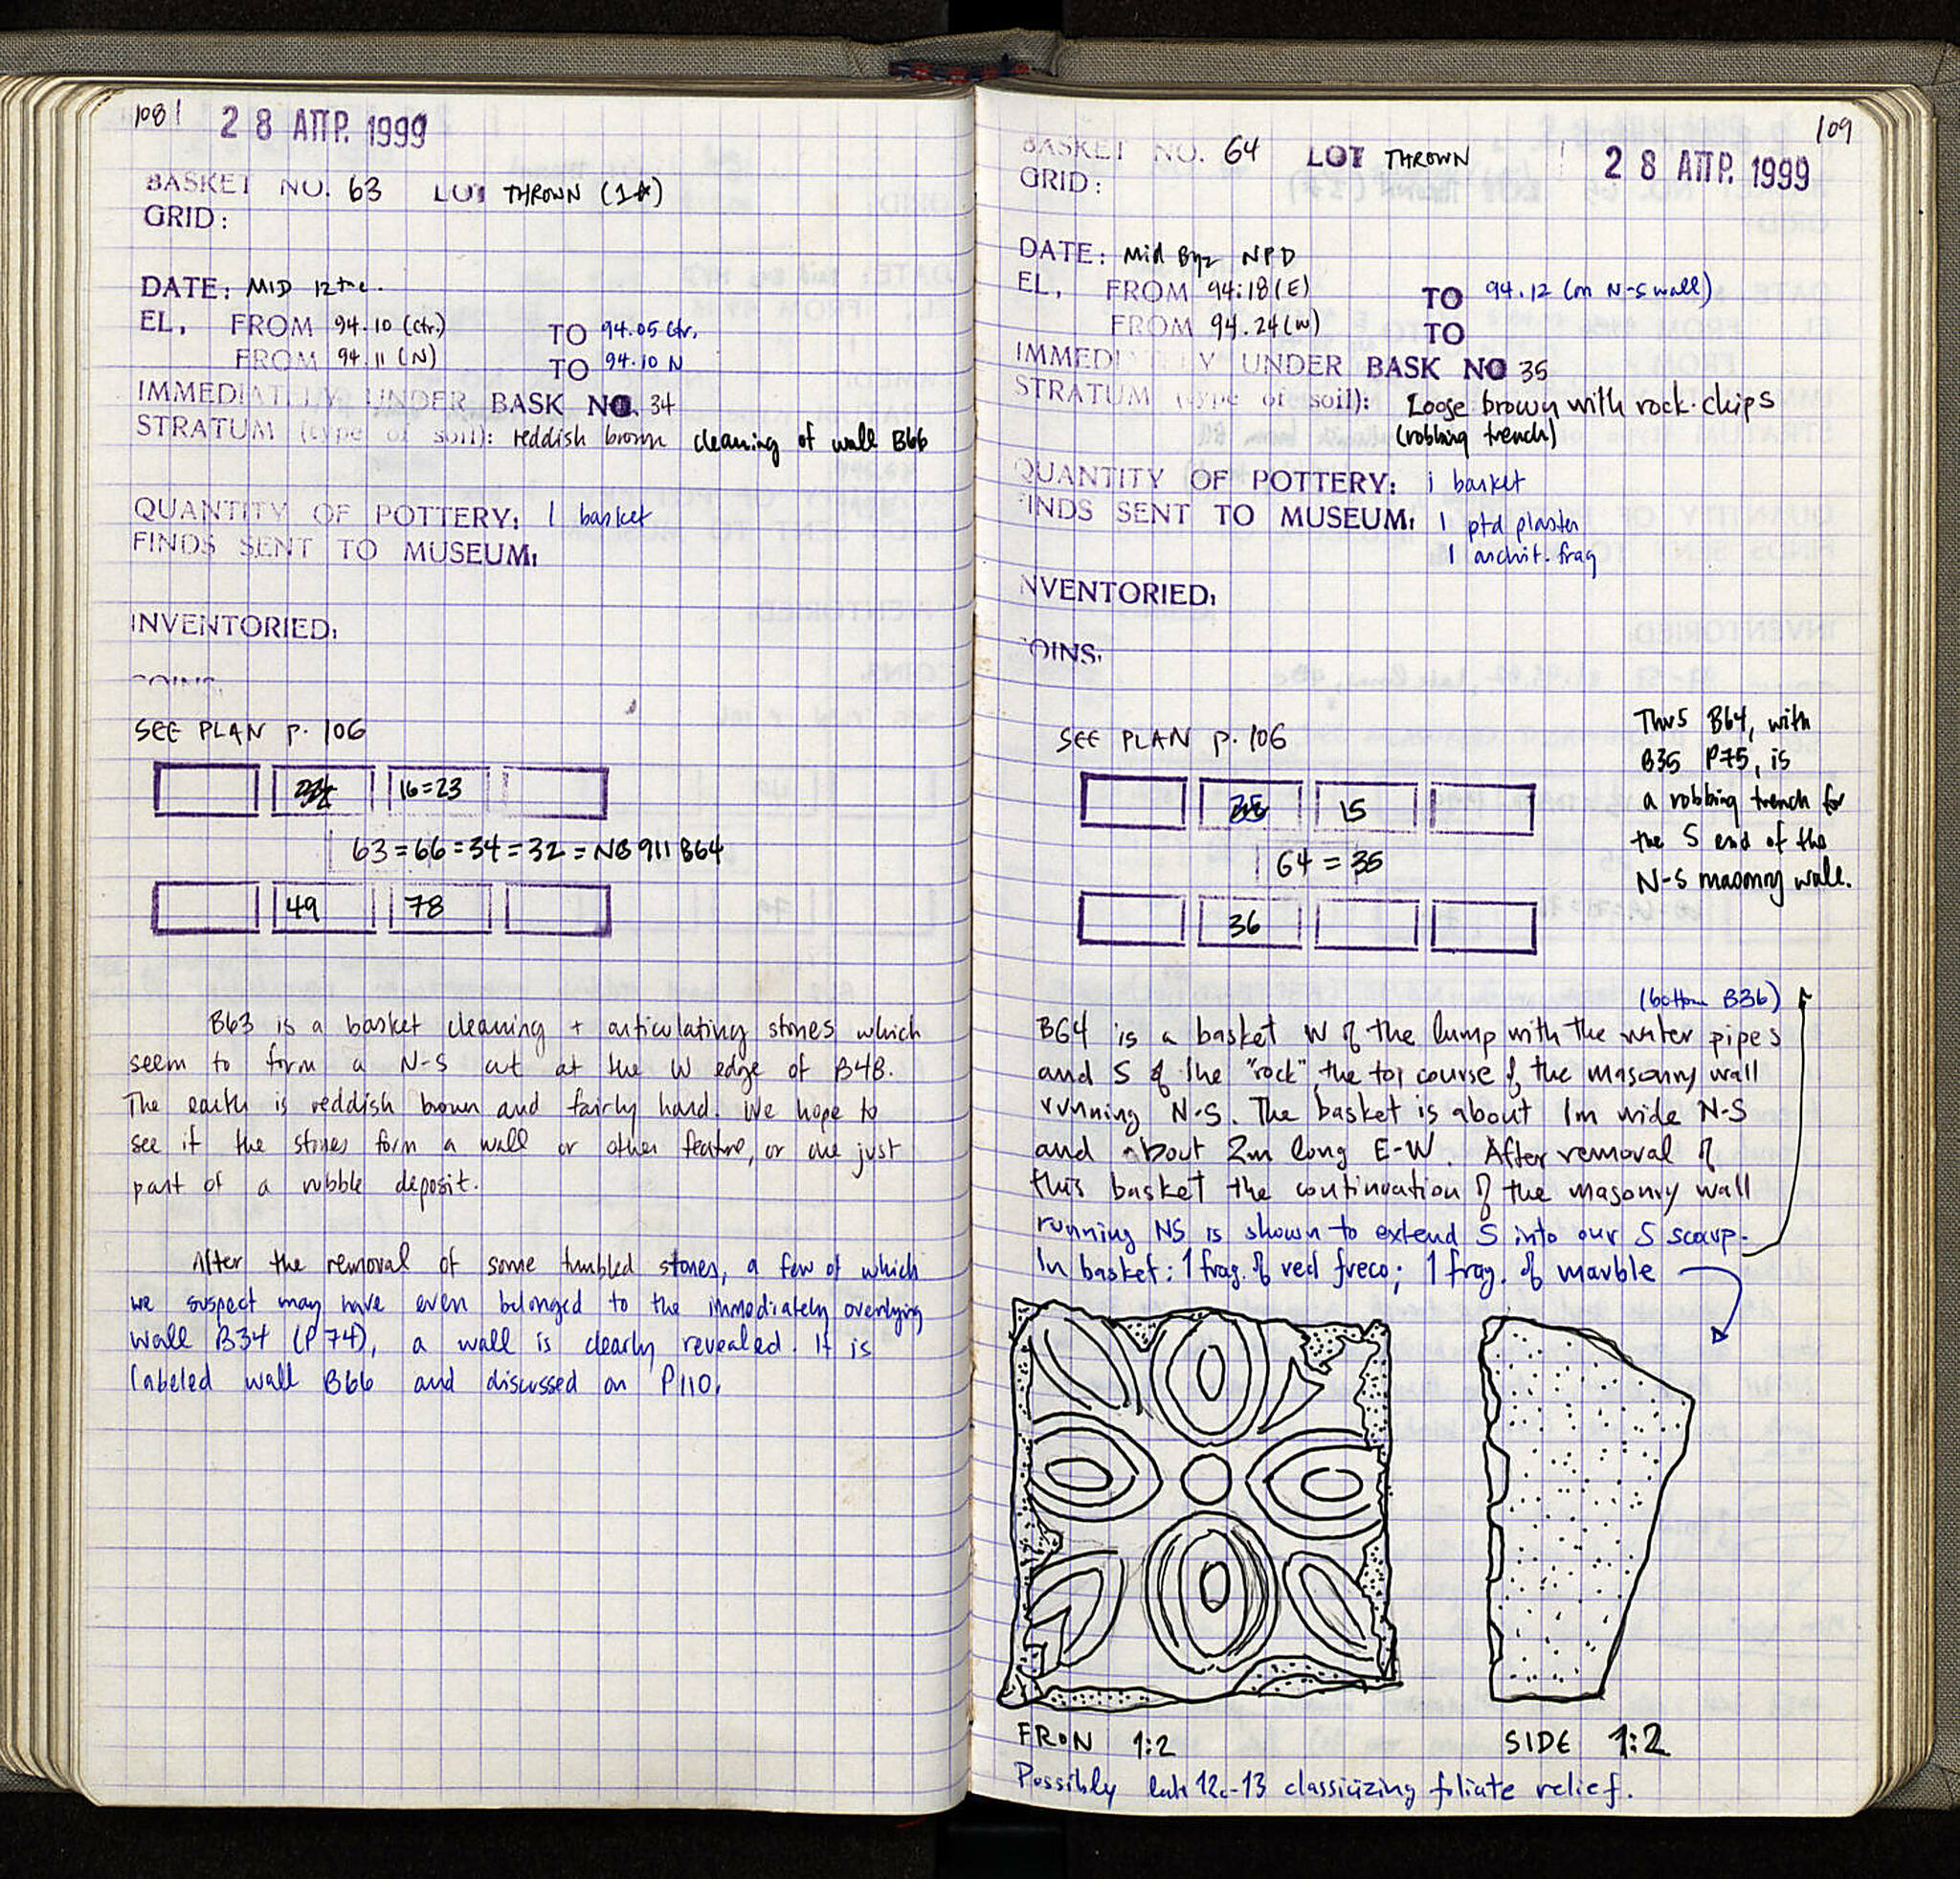 108
28 ΑΠΡ. 1999
BASKET NO. 63 LOT THROWN (1*)
GRID:
DATE: MID 12th c.
EL, FROM 94.10 (Ctr.) TO 94.05 Ctr.
FROM 94.11 (N) TO 94.10 N
IMMEDIATELY UNDER BASK NO. 34
STRATUM (type of soil): reddish brown cleaning of wall B66
QUANTITY OF POTTERY: 1 basket
FINDS SENT TO MUSEUM:
INVENTORIED:
COINS:
SEE PLAN p. 106
16=23
63=66=34=32=NB 911 B64
49 78
B63 is a basket cleaning + articulating stones which
seem to form a N-S cut at the W edge of B48.
The earth is reddish brown and fairly hard. We hope to
see if the stones form a wall or other feature, or are just
part of a rubble deposit.
After the removal of some tumbled stones, a few of which
we suspect may have even belonged to the immediately overlying
wall B34 (P74), a wall is clearly revealed. It is
labeled wall B66 and discussed on P110.
109
BASKET NO. 64 LOT THROWN
28 ΑΠΡ. 1999
GRID:
DATE: Mid Byz NPD
EL, FROM 94.18 (E) TO 94.12 (on N-S wall)
FROM 94.24 (W) TO
IMMEDIATELY UNDER BASK NO 35
STRATUM (type of soil): Loose brown with rock chips
(robbing trench)
QUANTITY OF POTTERY: 1 basket
FINDS SENT TO MUSEUM: 1 ptd plaster
1 archit. frag
INVENTORIED:
COINS:
SEE PLAN p. 106
15
64 = 35
36
Thus B64, with
B35 P75, is
a robbing trench for
the S end of the
N-S masonry wall.
(bottom B36)
B64 is a basket W of the lump with the water pipes
and S of the "rock", the top course of the masonry wall
running N-S. The basket is about 1m wide N-S
and about 2m long E-W. After removal of
this basket the continuation of the masonry wall
running NS is shown to extend S into our S scarp.
In basket: 1 frag. of red freco; 1 frag. of marble
FRON 1:2
SIDE 1:2
Possibly late 12c-13 classicizing foliate relief.